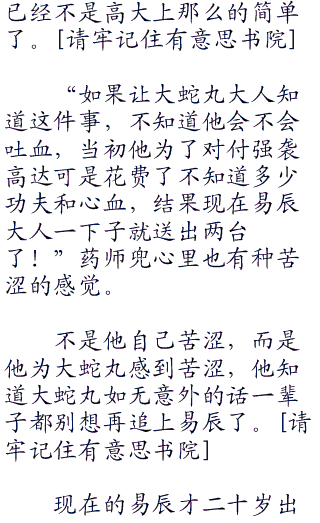 已经不是高大上那么的简单
了。[请牢记住有意思书院]
“如果让大蛇丸大人知
道这件事，不知道他会不会
吐血，当初他为了对付强袭
高达可是花费了不知道多少
功夫和心血，结果现在易辰
大人一下子就送出两台
了！”药师兜心里也有种苦
涩的感觉。
不是他自己苦涩，而是
他为大蛇丸感到苦涩，他知
道大蛇丸如无意外的话一辈
子都别想再追上易辰了。[请
牢记住有意思书院]
现在的易辰才二十岁出